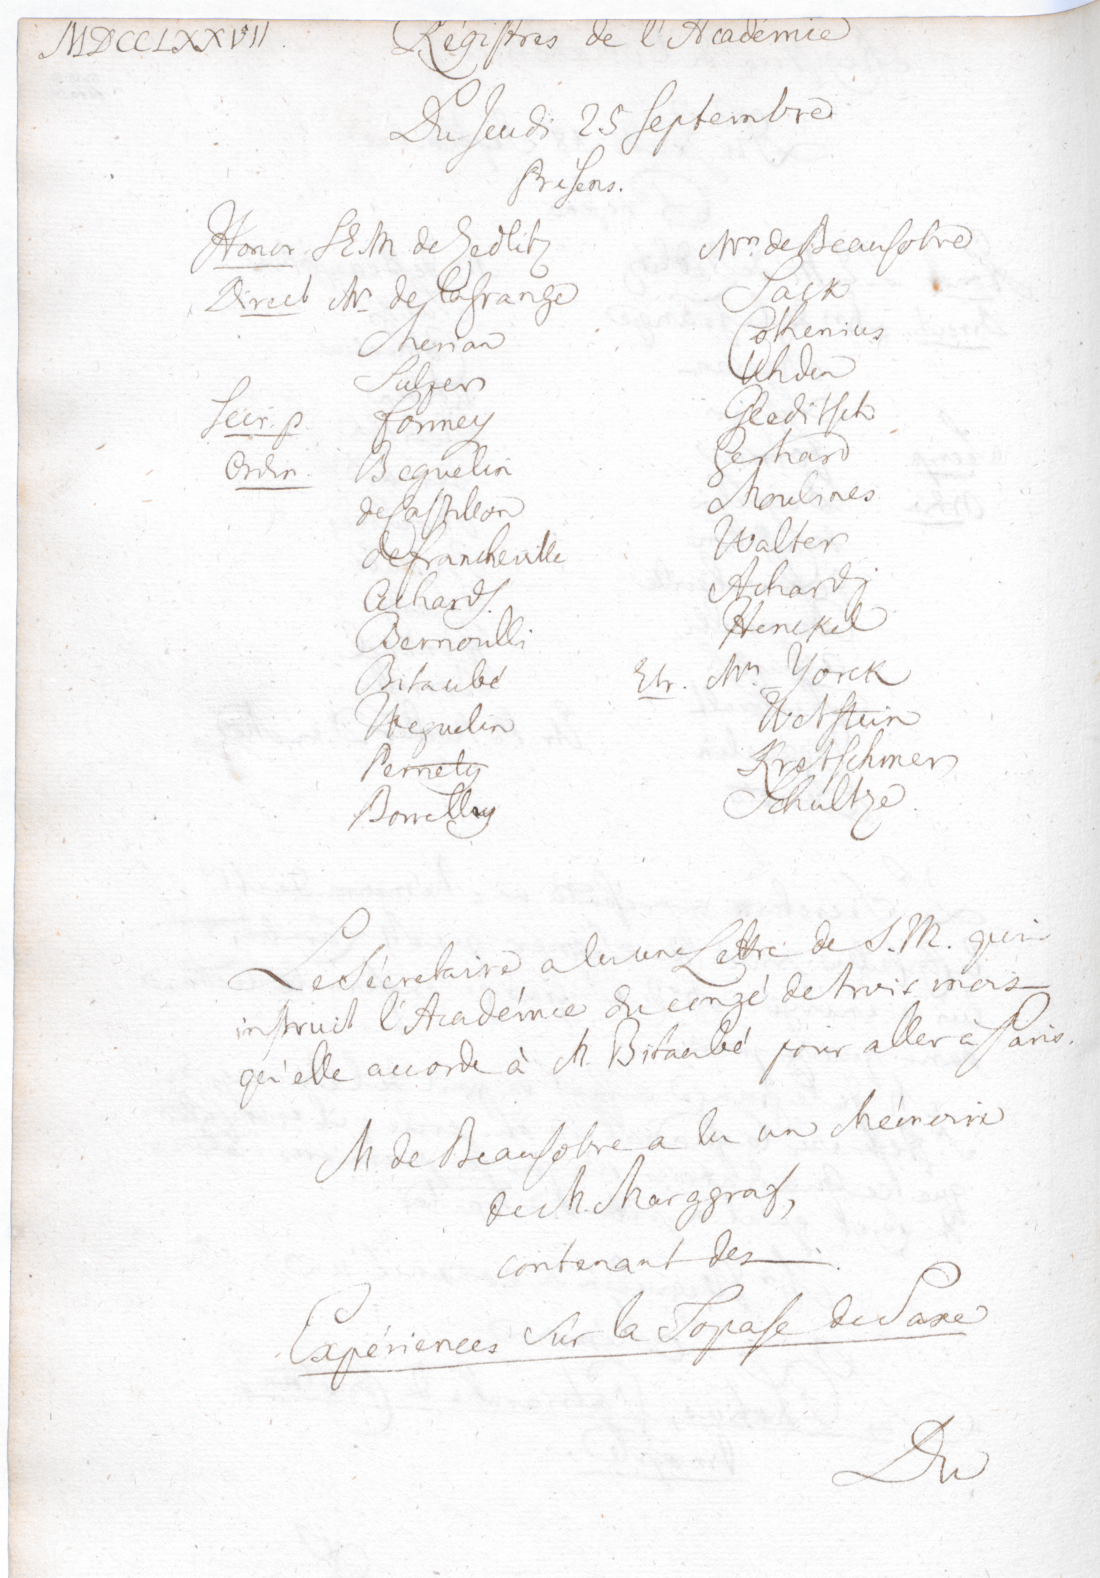 MDCCLXXVII. Régistres de l'Académie
Du Jeudi 25 Septembre
Présens.
Honor S. E. M. de Zedlitz
Direct Mr. de la Grange
Merian
Sulzer
Secr. p. Formey
Ordin. Beguelin
de Castillon
de Francheville
Achard S.
Bernoulli
Bitaubé
Weguelin
Pernety
Borrelly
Mrs. de Beausobre
Sack
Cothenius
Uhden
Gleditsch
Gerhard
Moulines
Walter
Achard j
Henckel
Etr. Mrs. Yorck
Wetstein
Kretschmer
Schultze.
Le Sécretaire a lu une Lettre de S. M. qui
instruit l'Académie du congé de trois mois
qu'elle accorde à M. Bitaubé pour aller à Paris.
M. de Beausobre a lu un Mémoire
de M. Marggraf,
contenant des
Expériences sur la Topase de Saxe
Du